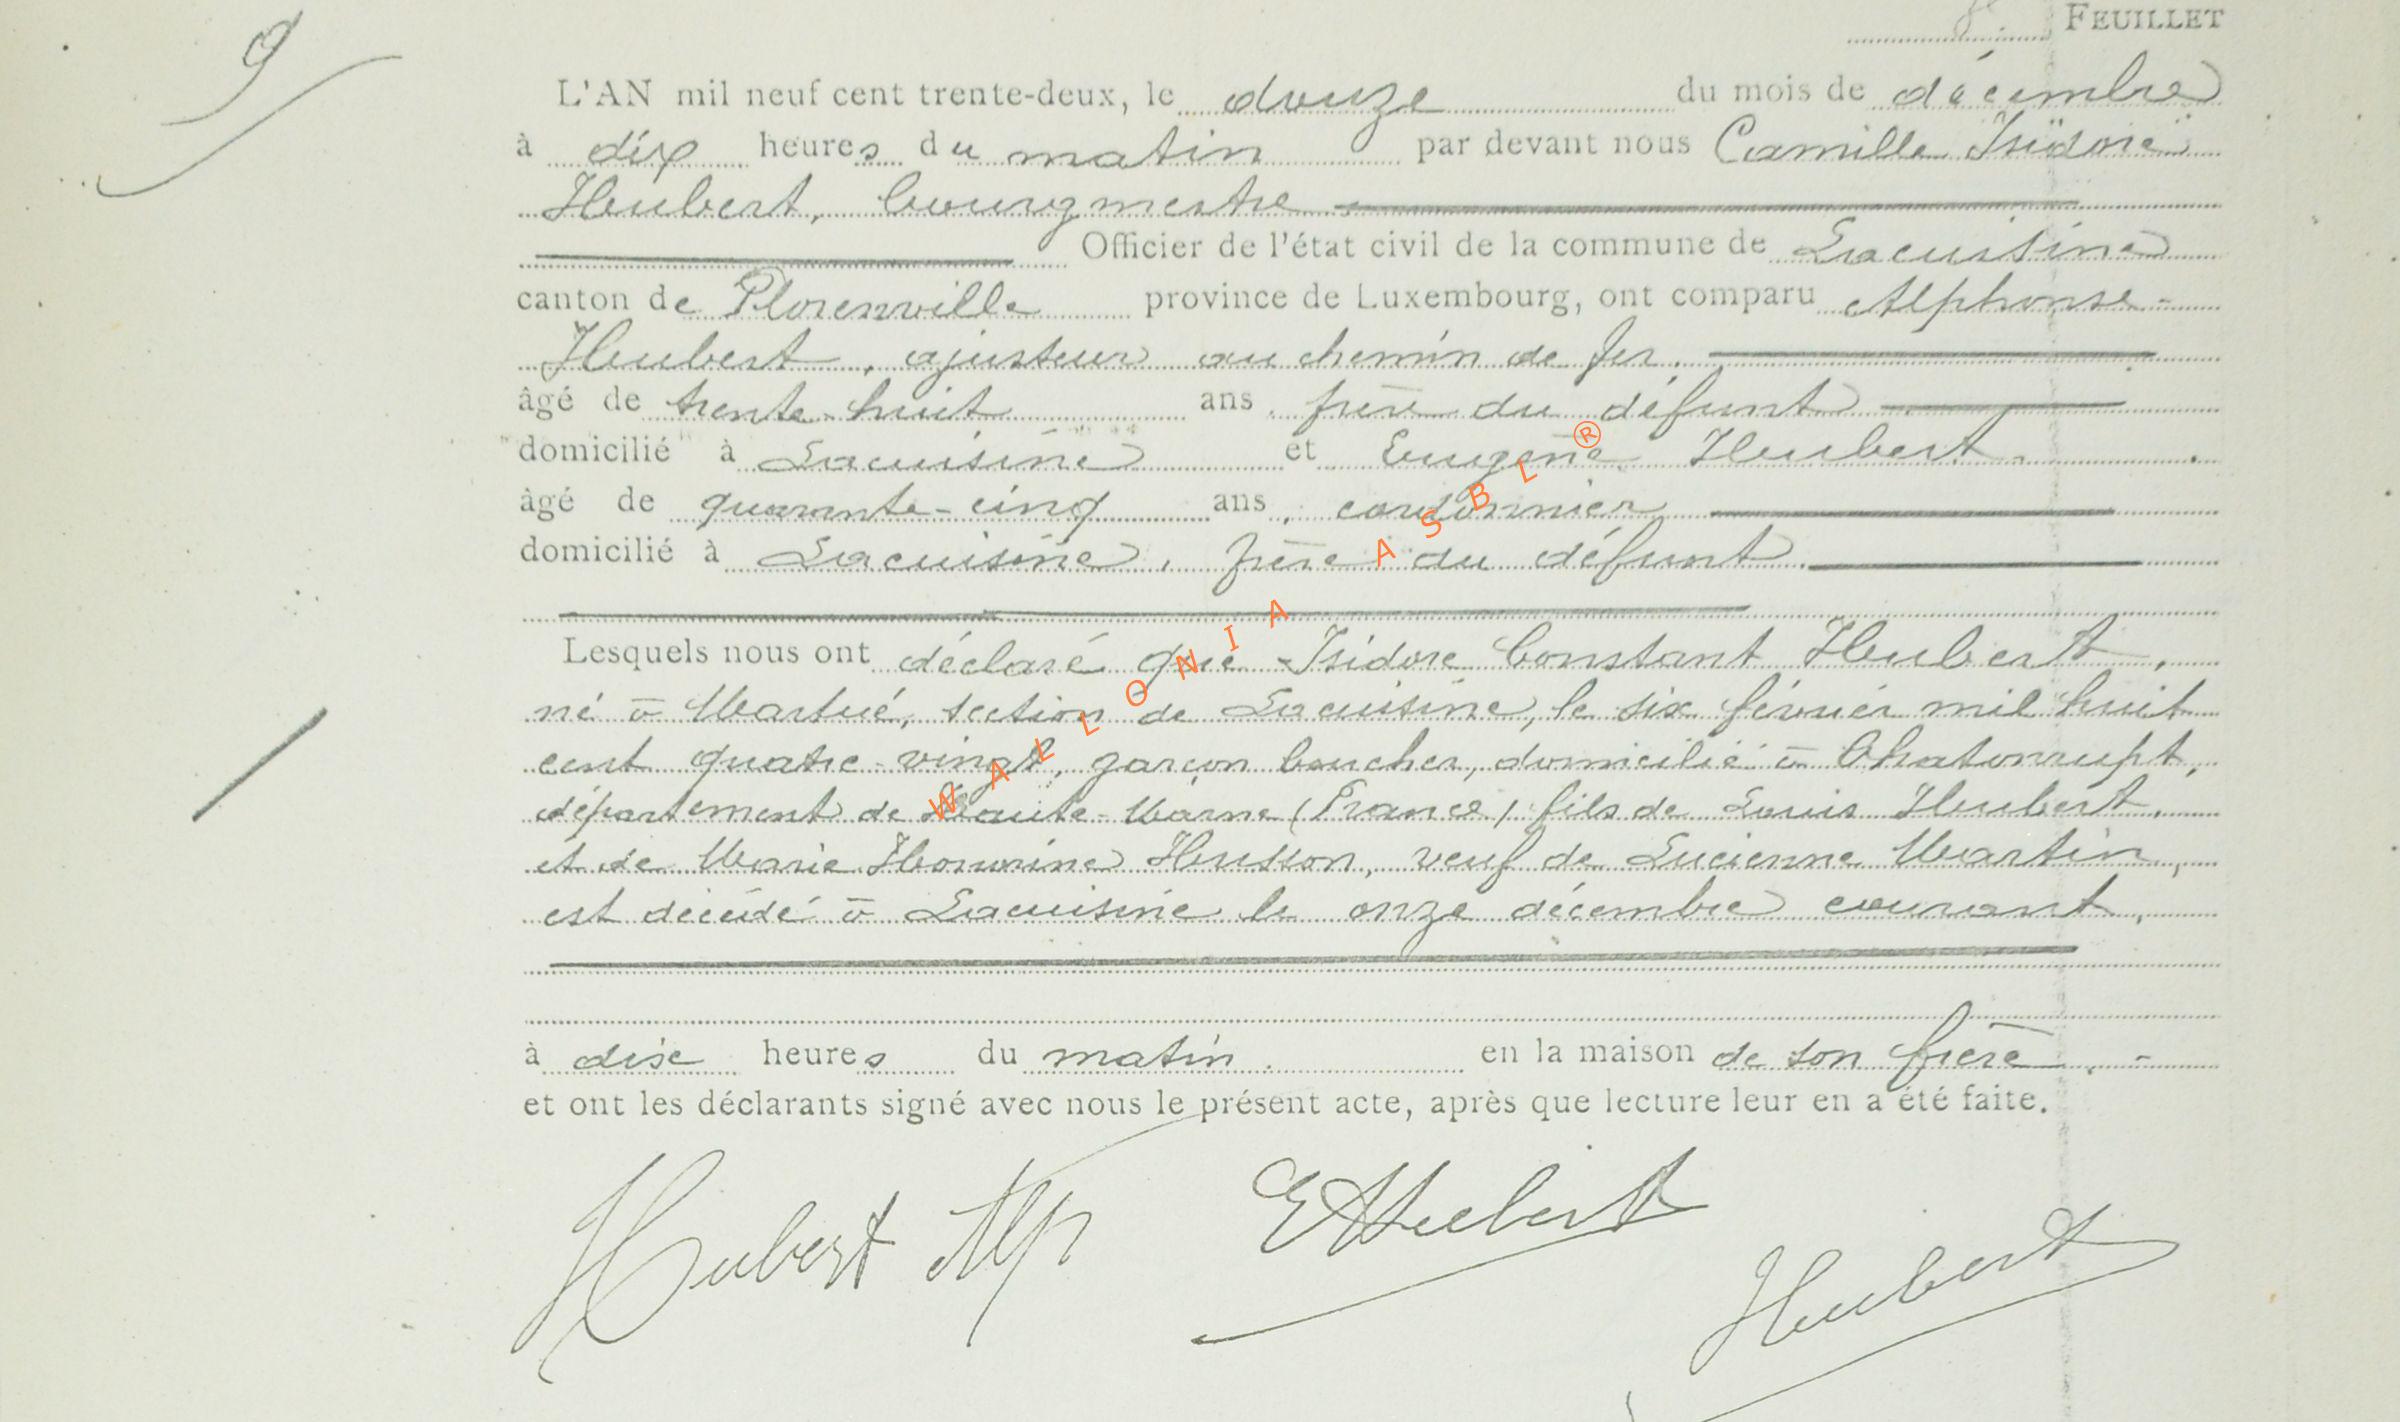 8. FEUILLET
9
L'AN mil neuf cent trente-deux, le douze du mois de décembre
à dix heures du matin par devant nous Camille Isidore
Hubert, bourgmestre
Officier de l'état civil de la commune de Lacuisine
canton de Florenville province de Luxembourg, ont comparu Alphonse
Hubert, ajusteur au chemin de fer.
âgé de trente-huit ans, frère du défunt
domicilié à Lacuisine et Eugène Hubert.
âgé de quarante-cinq ans, cordonnier
domicilié à Lacuisine, frère du défunt.
Lesquels nous ont déclaré que Isidore Constant Hubert,
né à Martué, section de Lacuisine, le six février mil huit
cent quatre-vingt, garçon boucher, domicilié à Chatonrupt,
département de Haute-Marne (France) fils de Louis Hubert,
et de Marie Honorine Husson, veuf de Lucienne Martin,
est décédé à Lacuisine le onze décembre courant,
à dix heures du matin. en la maison de son frère.
et ont les déclarants signé avec nous le présent acte, après que lecture leur en a été faite.
Hubert Alp EHubert
Hubert
WALLONIA ASBL ®